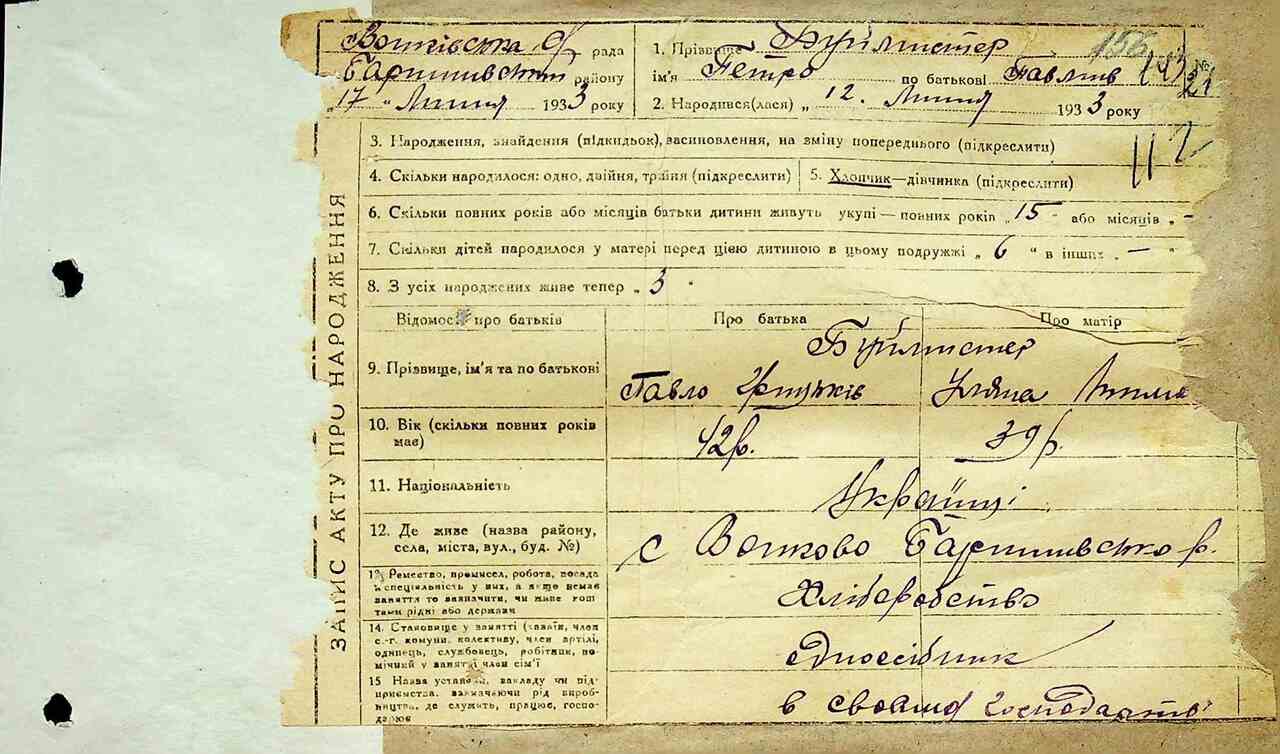 рада
району
„17“ Липня 1933 року
1. Прізвище Буймистер
ім'я Петро по батькові Павлів
2. Народився(лася) „12. Липня 1933 року
156
143
№ 21
112
ЗАПИС АКТУ ПРО НАРОДЖЕННЯ
3. Народження, знайдення (підкидьок), засиновлення, на зміну попереднього (підкреслити)
4. Скільки народилося: одно, двійня, трайня (підкреслити)
5. Хлопчик—дівчинка (підкреслити)
6. Скільки повних років або місяців батьки дитини живуть укупі—повних років „15 - або місяців „-
7. Скільки дітей народилося у матері перед цією дитиною в цьому подружжі „6“ в інших „—"
8. З усіх народжених живе тепер „3"
Відомості про батьків Про батька Про матір
Буймистер
9. Прізвище, ім'я та по батькові Павло Уляна
10. Вік (скільки повних років має) 42р. 39р.
11. Національність Українці
12. Де живе (назва району, села, міста, вул., буд. №) с
13. Ремество, промисел, робота, посада и спеціяльність у них, а якщо немає заняття то зазначити, чи живе кош тами рідні або держави Хліборобство
14. Становище у занятті (хазяїн, член с.-г. комуни, колективу, член артілі, одинець, службовець, робітник, по мічний у занятті член сім'ї одноосібник
15 Назва установи, закладу чи під приємства, зазначаючи рід вироб- ництва, де служить, працює, госпо- дарює в своєму господарстві